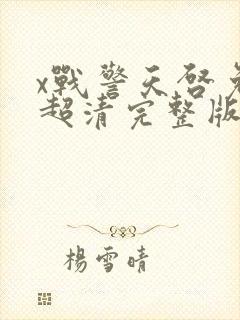 x戰警天啓免
超清完整版
楊雪晴